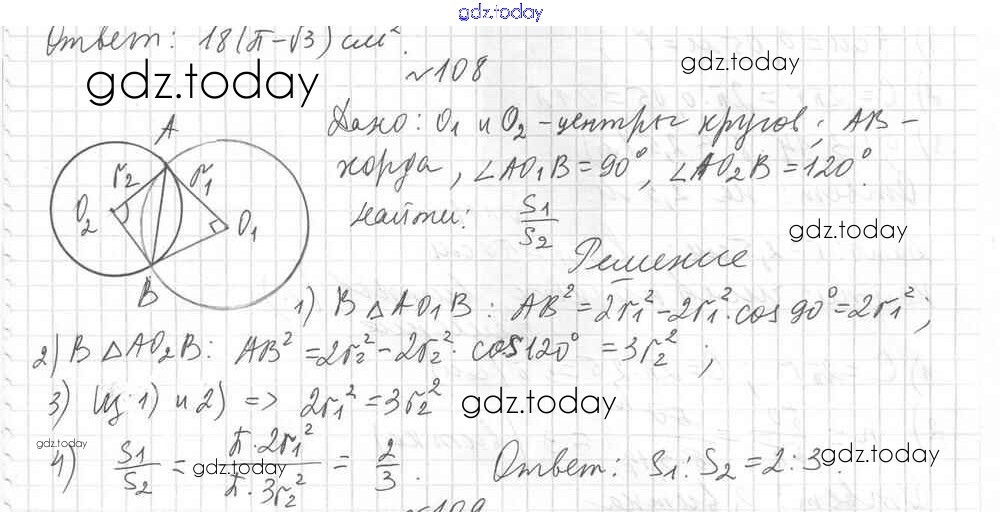 gdz.today
Ответ: 18(π-√3) см².
gdz.today
№108
gdz.today
Дано: O₁ и O₂ - центры кругов; AB -
хорда, ∠AO₁B = 90°, ∠AO₂B = 120°.
Найти: S₁/S₂
gdz.today
A
r₂
r₁
O₂
O₁
B
Решение
1) В △AO₁B: AB² = 2r₁² - 2r₁²·cos 90° = 2r₁²;
2) В △AO₂B: AB² = 2r₂² - 2r₂²·cos 120° = 3r₂²;
3) Из 1) и 2) => 2r₁² = 3r₂²
gdz.today
gdz.today
4) S₁/S₂ = π·2r₁²/π·3r₂² = 2/3.
gdz.today
Ответ: S₁:S₂ = 2:3.
gdz.today
№109